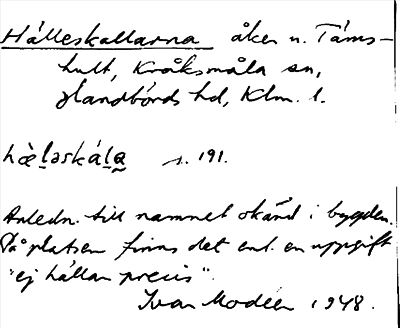 Hälleskallarna åker n. Täms-
hult, Kråksmåla sn,
Handbörds hd, Klm. l.
hæ̀l̥əskál̥a s. 191.
Anledn. till namnet okänd i bygden.
På platsen finns det enl. en uppgift
"ej hällar precis".
Ivar Modéer 1948.